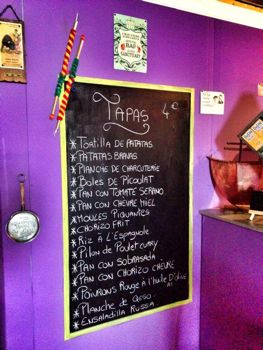 TAPAS 4€
* Tortilla DE PATATAS
* PATATAS BRAVAS
* PLANCHE DE CHARCUTERIE
* Boles DE PICOULAT
* PAN CON TOMATE SERANO
* PAN CON CHEVRE MIEL
* MOULES PIQUANTES
* CHORIZO FRIT
* Riz À L'Espagnole
* Pilon de Poulet CURRY
* PAN CON SOBRASADA
* PAN CON CHORIZO CHEVRE
* Poivrons Rouge à l'huile D'OLIVE
* PLANCHE DE QESO
* ENSALADILLA RUSSA